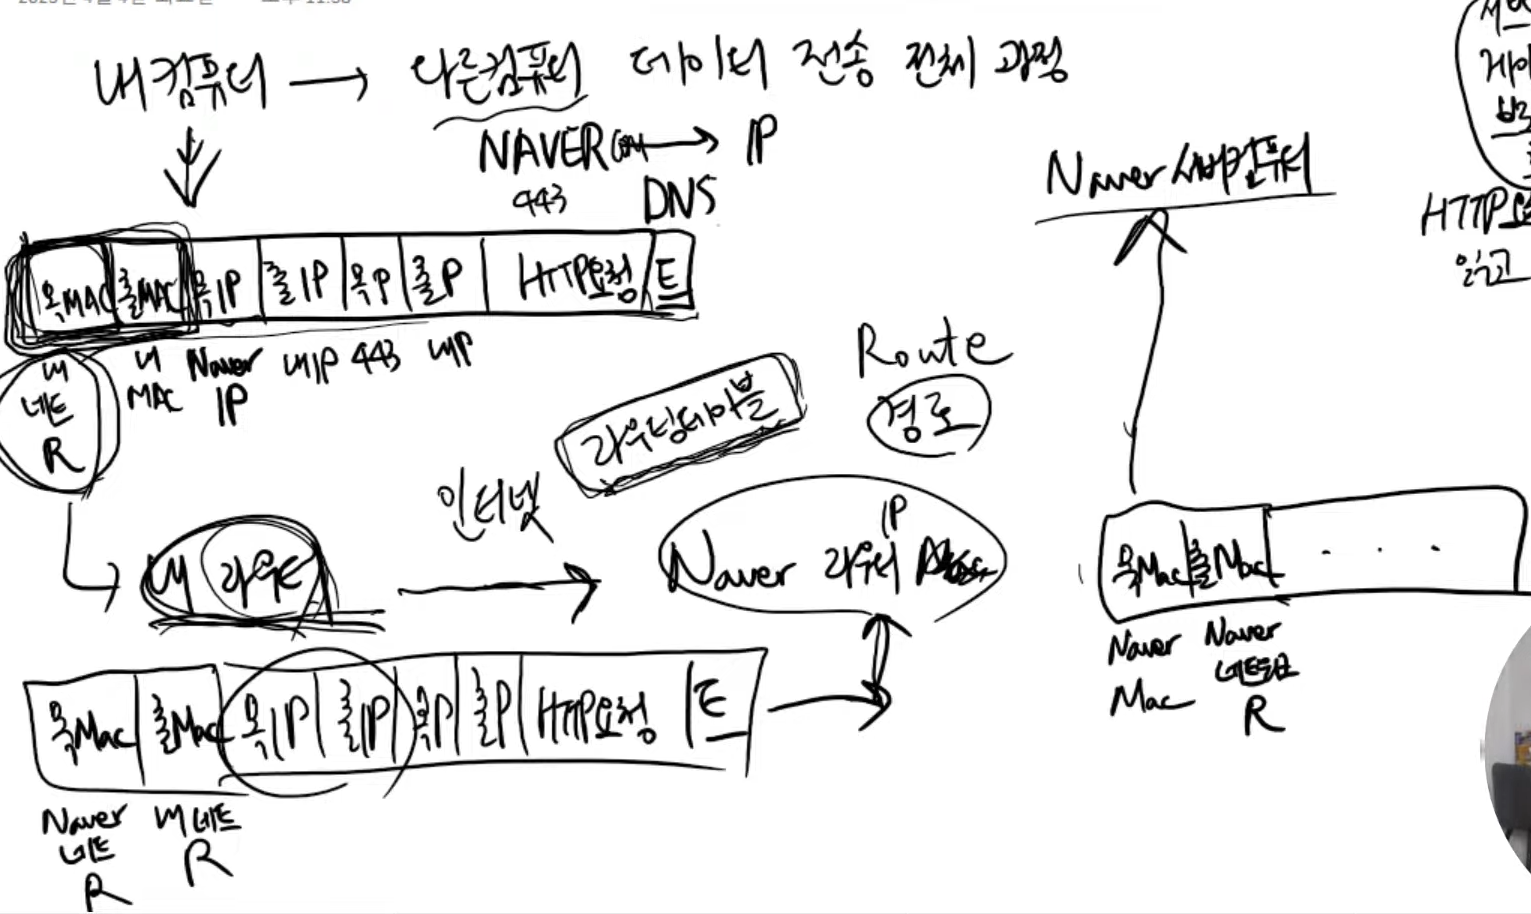 내컴퓨터 → 다른컴퓨터 데이터 전송 전체 과정
NAVER.com → IP
443 DNS
목MAC 출MAC 목IP 출IP 목P 출P HTTP요청 E
내 네트 R
내 MAC
Naver IP
내IP 443 내P
Route
경로
라우팅테이블
인터넷
내 라우터
Naver 라우터 IP
목Mac 출Mac 목IP 출IP 목P 출P HTTP요청 E
Naver 네트 R
내 네트 R
Naver 서버컴퓨터
목Mac 출Mac . . .
Naver Mac
Naver 네트워크 R
HTTP요
읽고